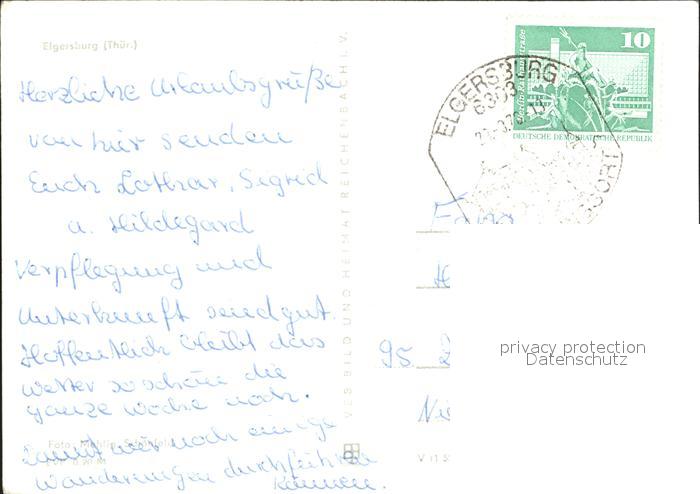 Elgersburg (Thür.)
Herzliche Urlaubsgrüße
von hier senden
Euch Lothar, Sigrid
u. Hildegard
Verpflegung und
Unterkunft sind gut.
Hoffentlich bleibt das
Wetter so schön die
ganze Woche noch.
Damit wir noch einige
Wanderungen durchführen
können.
VEB BILD UND HEIMAT REICHENBACH I. V.
10
DEUTSCHE DEMOKRATISCHE REPUBLIK
ELGERSBURG
6303
95
privacy protection
Datenschutz
V 11